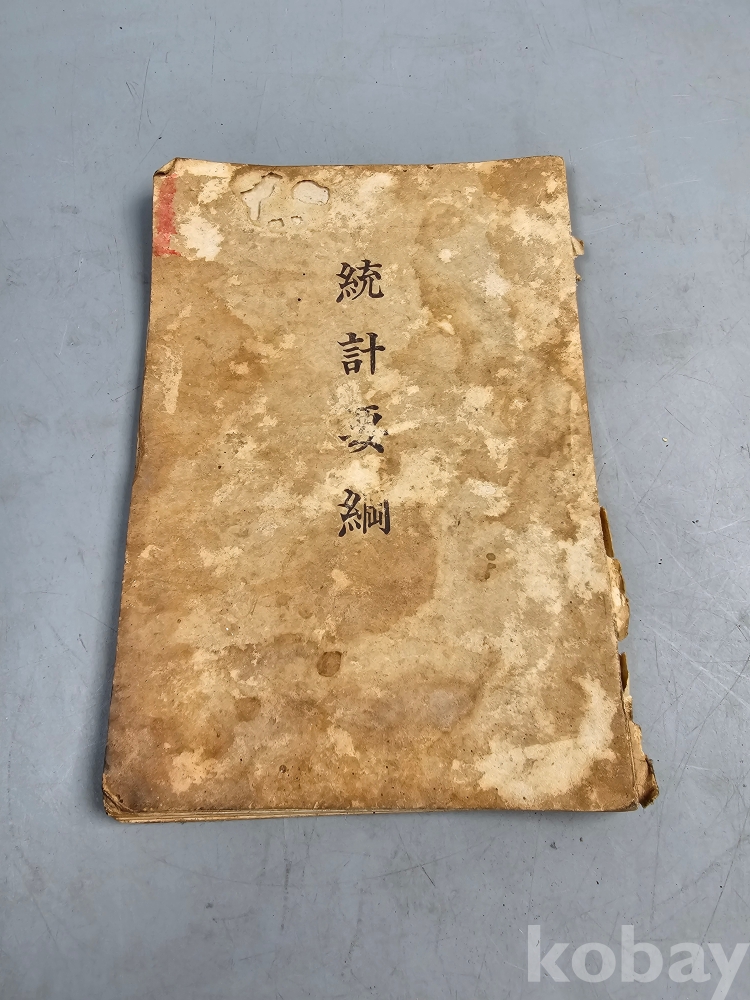 統計要綱
kobay